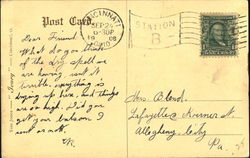 Post Card.
CINCINNATI
SEP 24
6-30P
1908
STATION
B
Dear Friend
What do you think
of the dry spell we
are having isn't it
terrible, everything is
drying up here, and things
are so high. Did you
get your
or not.
Mrs.
Lafayette &
Allegheny City
Pa.